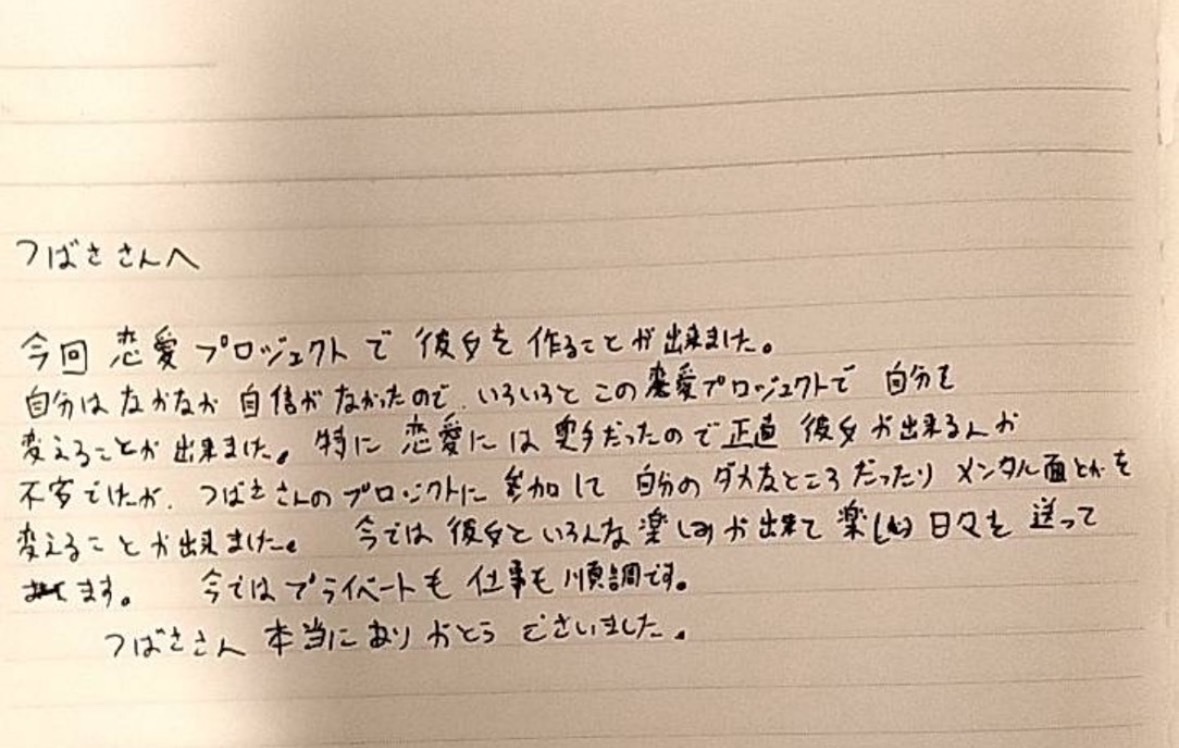 つばささんへ
今回 恋愛プロジェクトで 彼女を 作ることが 出来ました。
自分は なかなか 自信が なかったので、いろいろと この 恋愛プロジェクトで 自分を
変えることが 出来ました。特に 恋愛には 奥手だったので 正直 彼女が出来るんか
不安でしたが、つばささんの プロジェクトに 参加して 自分の ダメなところ だったり メンタル面とかを
変えること が出来ました。 今では 彼女と いろんな 楽しみが 出来て 楽しい 日々を 送って
ます。 今では プライベートも 仕事も 順調です。
つばささん 本当に ありがとう ございました。